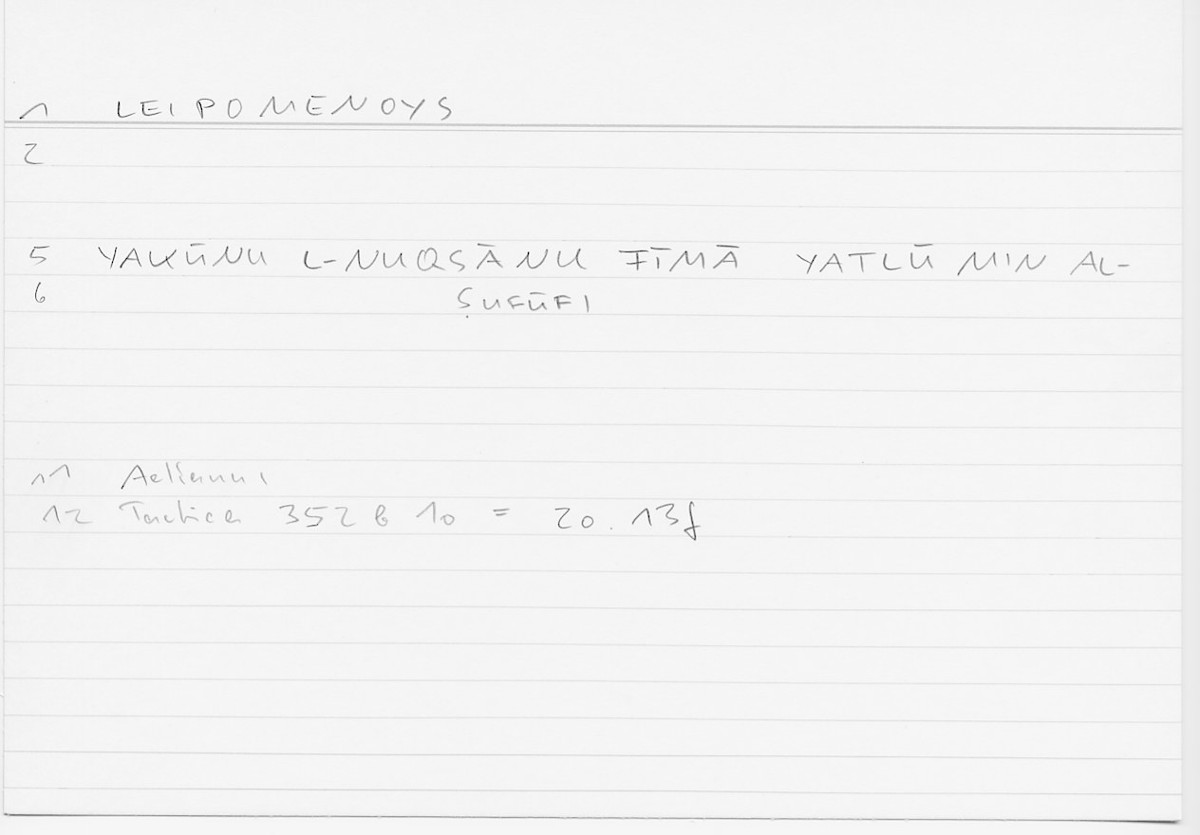 1 LEIPOMENOYS
2
5 YAKŪNU L-NUQSĀNU FĪMĀ YATLŪ MIN AL-
6 ṢUFŪFI
11 Aelianus
12 Tactica 352 b 10 = 20.13f